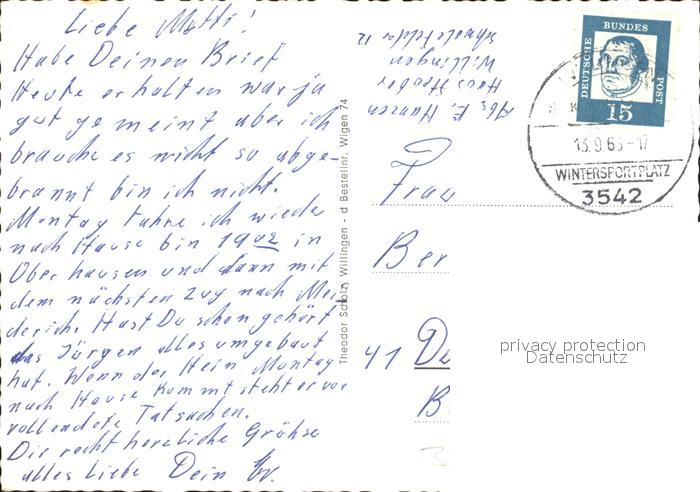 Liebe Mutti!
Habe Deinen Brief
Heute erhalten war ja
gut gemeint aber ich
brauche es nicht so abge-
brannt bin ich nicht.
Montag fahre ich wieder
nach Hause bin 19 in
Oberhausen und dann mit
dem nächsten Zug nach Mei-
derich. Hast Du schon gehört
das Jürgen alles umgebaut
hat. Wenn der Hein Montag
nach Hause kommt steht er vor
vollendete Tatsachen.
Die recht herzliche Grühse
alles Liebe Dein
Theodor Scholz, Willingen - d Bestellnr. Wigen 74
Abs. E. Hansen
Haus
Willingen
12
DEUTSCHE BUNDES POST
15
13.9.63-17
WINTERSPORTPLATZ
3542
Frau
Ber
41 Du
B
privacy protection
Datenschutz